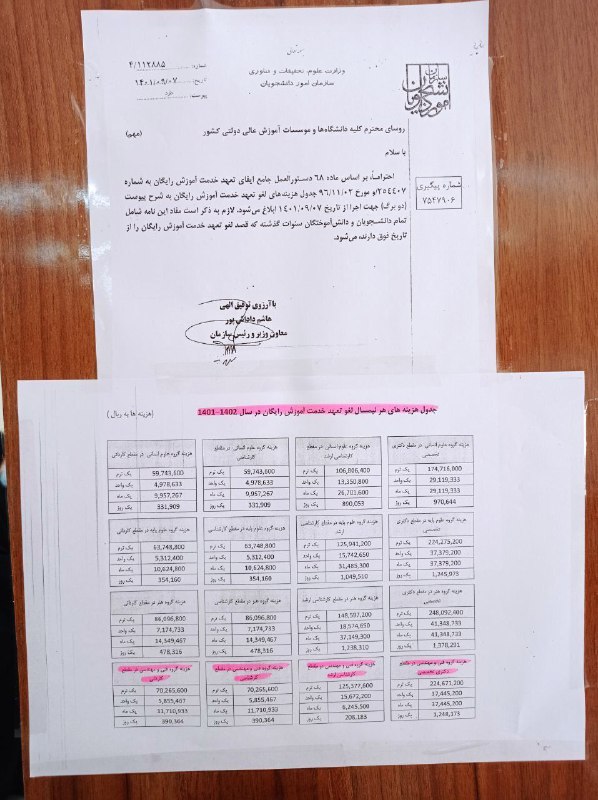 بسمه تعالی
وزارت علوم، تحقیقات و فناوری
سازمان امور دانشجویان
شماره: ۴/۱۱۲۸۸۵
تاریخ: ۱۴۰۱/۰۹/۰۷
پیوست: دارد
سازمان امور دانشجویان
روسای محترم کلیه دانشگاه‌ها و موسسات آموزش عالی دولتی کشور (مهم)
با سلام
احتراماً، بر اساس ماده ۶۸ دستورالعمل جامع ایفای تعهد خدمت آموزش رایگان به شماره
۲۵۴۴۰۷/و مورخ ۹۶/۱۱/۰۲ جدول هزینه‌های لغو تعهد خدمت آموزش رایگان به شرح پیوست
(دو برگ) جهت اجرا از تاریخ ۱۴۰۱/۰۹/۰۷ ابلاغ می‌شود. لازم به ذکر است مفاد این نامه شامل
تمام دانشجویان و دانش‌آموختگان سنوات گذشته که قصد لغو تعهد خدمت آموزش رایگان را از
تاریخ فوق دارند، می‌شود.
شماره پیگیری
۷۵۴۷۹۰۶
با آرزوی توفیق الهی
هاشم داداش پور
معاون وزیر و رئیس سازمان
جدول هزینه های هر نیمسال لغو تعهد خدمت آموزش رایگان در سال 1402-1401
(هزینه ها به ریال)
هزینه گروه علوم انسانی در مقطع دکتری تخصصی
یک ترم 174,716,000
یک واحد 29,119,333
یک ماه 29,119,333
یک روز 970,644
هزینه گروه علوم انسانی در مقطع کارشناسی ارشد
یک ترم 106,806,400
یک واحد 13,350,800
یک ماه 26,701,600
یک روز 890,053
هزینه گروه علوم انسانی در مقطع کارشناسی
یک ترم 59,743,600
یک واحد 4,978,633
یک ماه 9,957,267
یک روز 331,909
هزینه گروه علوم انسانی در مقطع کاردانی
یک ترم 59,743,600
یک واحد 4,978,633
یک ماه 9,957,267
یک روز 331,909
هزینه گروه علوم پایه در مقطع دکتری تخصصی
یک ترم 224,275,200
یک واحد 37,379,200
یک ماه 37,379,200
یک روز 1,245,973
هزینه گروه علوم پایه در مقطع کارشناسی ارشد
یک ترم 125,941,200
یک واحد 15,742,650
یک ماه 31,485,300
یک روز 1,049,510
هزینه گروه علوم پایه در مقطع کارشناسی
یک ترم 63,748,800
یک واحد 5,312,400
یک ماه 10,624,800
یک روز 354,160
هزینه گروه علوم پایه در مقطع کاردانی
یک ترم 63,748,800
یک واحد 5,312,400
یک ماه 10,624,800
یک روز 354,160
هزینه گروه هنر در مقطع دکتری تخصصی
یک ترم 248,092,400
یک واحد 41,348,733
یک ماه 41,348,733
یک روز 1,378,291
هزینه گروه هنر در مقطع کارشناسی ارشد
یک ترم 148,597,200
یک واحد 18,574,650
یک ماه 37,149,300
یک روز 1,238,310
هزینه گروه هنر در مقطع کارشناسی
یک ترم 86,096,800
یک واحد 7,174,733
یک ماه 14,349,467
یک روز 478,316
هزینه گروه هنر در مقطع کاردانی
یک ترم 86,096,800
یک واحد 7,174,733
یک ماه 14,349,467
یک روز 478,316
هزینه گروه فنی و مهندسی در مقطع دکتری تخصصی
یک ترم 224,671,200
یک واحد 37,445,200
یک ماه 37,445,200
یک روز 1,248,173
هزینه گروه فنی و مهندسی در مقطع کارشناسی ارشد
یک ترم 125,377,600
یک واحد 15,672,200
یک ماه 6,245,500
یک روز 208,183
هزینه گروه فنی و مهندسی در مقطع کارشناسی
یک ترم 70,265,600
یک واحد 5,855,467
یک ماه 11,710,933
یک روز 390,364
هزینه گروه فنی و مهندسی در مقطع کاردانی
یک ترم 70,265,600
یک واحد 5,855,467
یک ماه 11,710,933
یک روز 390,364